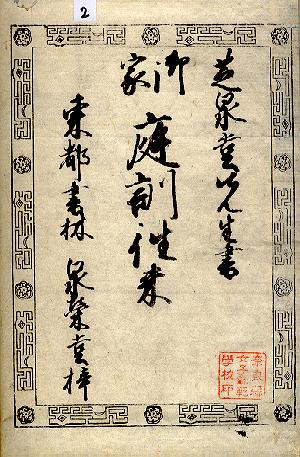 2
芝泉堂先生書
御家
庭訓往来
東都書林 泉榮堂梓
奈良縣
女子師範
學校印